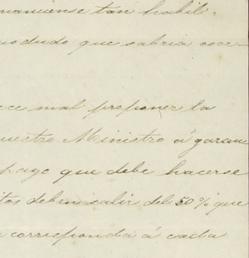 tan habil.
no dudo que sabria
mal proponer la
nuestro Ministro á garan
pago que debe hacerse
deben salir del 50% que
corresponda á cada